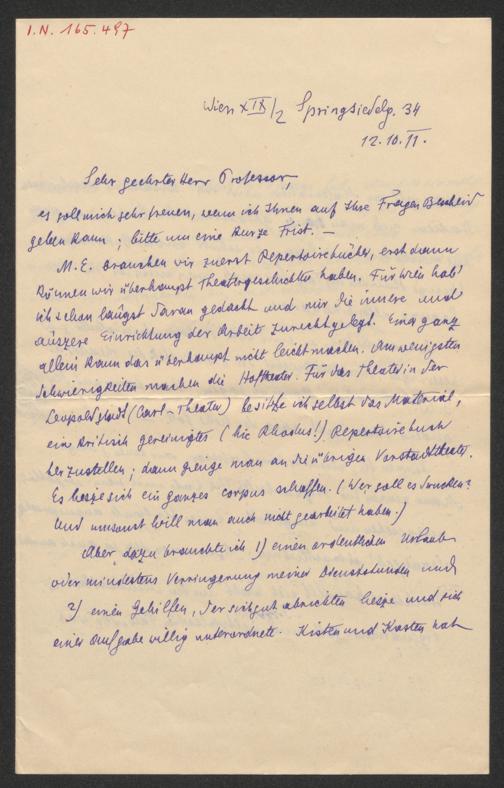 I.N. 165.497
Wien XIX/2 Springsiedelg. 34
12.10.11.
Sehr geehrter Herr Professor,
es soll mich sehr freuen, wenn ich Ihnen auf Ihre Fragen Bescheid
geben kann; bitte um eine kurze Frist. —
M.E. brauchen wir zuerst Repertoirebücher, erst dann
können wir überhaupt Theatergeschichte haben. Für Wien hab'
ich schon längst daran gedacht und mir die innere und
äuszere Einrichtung der Arbeit zurechtgelegt. Einer ganz
allein kann das überhaupt nicht leicht machen. Am wenigsten
Schwierigkeiten machen die Hoftheater. Für das Theater in der
Leopoldstadt (Carl-Theater) besitze ich selbst das Material,
ein kritisch gereinigtes (hic Rhodus!) Repertoirebuch
herzustellen; dann ginge man an die übrigen Vorstadttheater.
Es liesze sich ein ganzes corpus schaffen. (Wer soll es drucken?
Und umsonst will man auch nicht gearbeitet haben.)
Aber dazu brauchte ich 1) einen ordentlichen Urlaub
oder mindestens Verringerung meiner Dienststunden und
2) einen Gehilfen, der sich gut abrichten liesze und sich
einer Aufgabe willig unterordnete. Kisten und Kasten hab